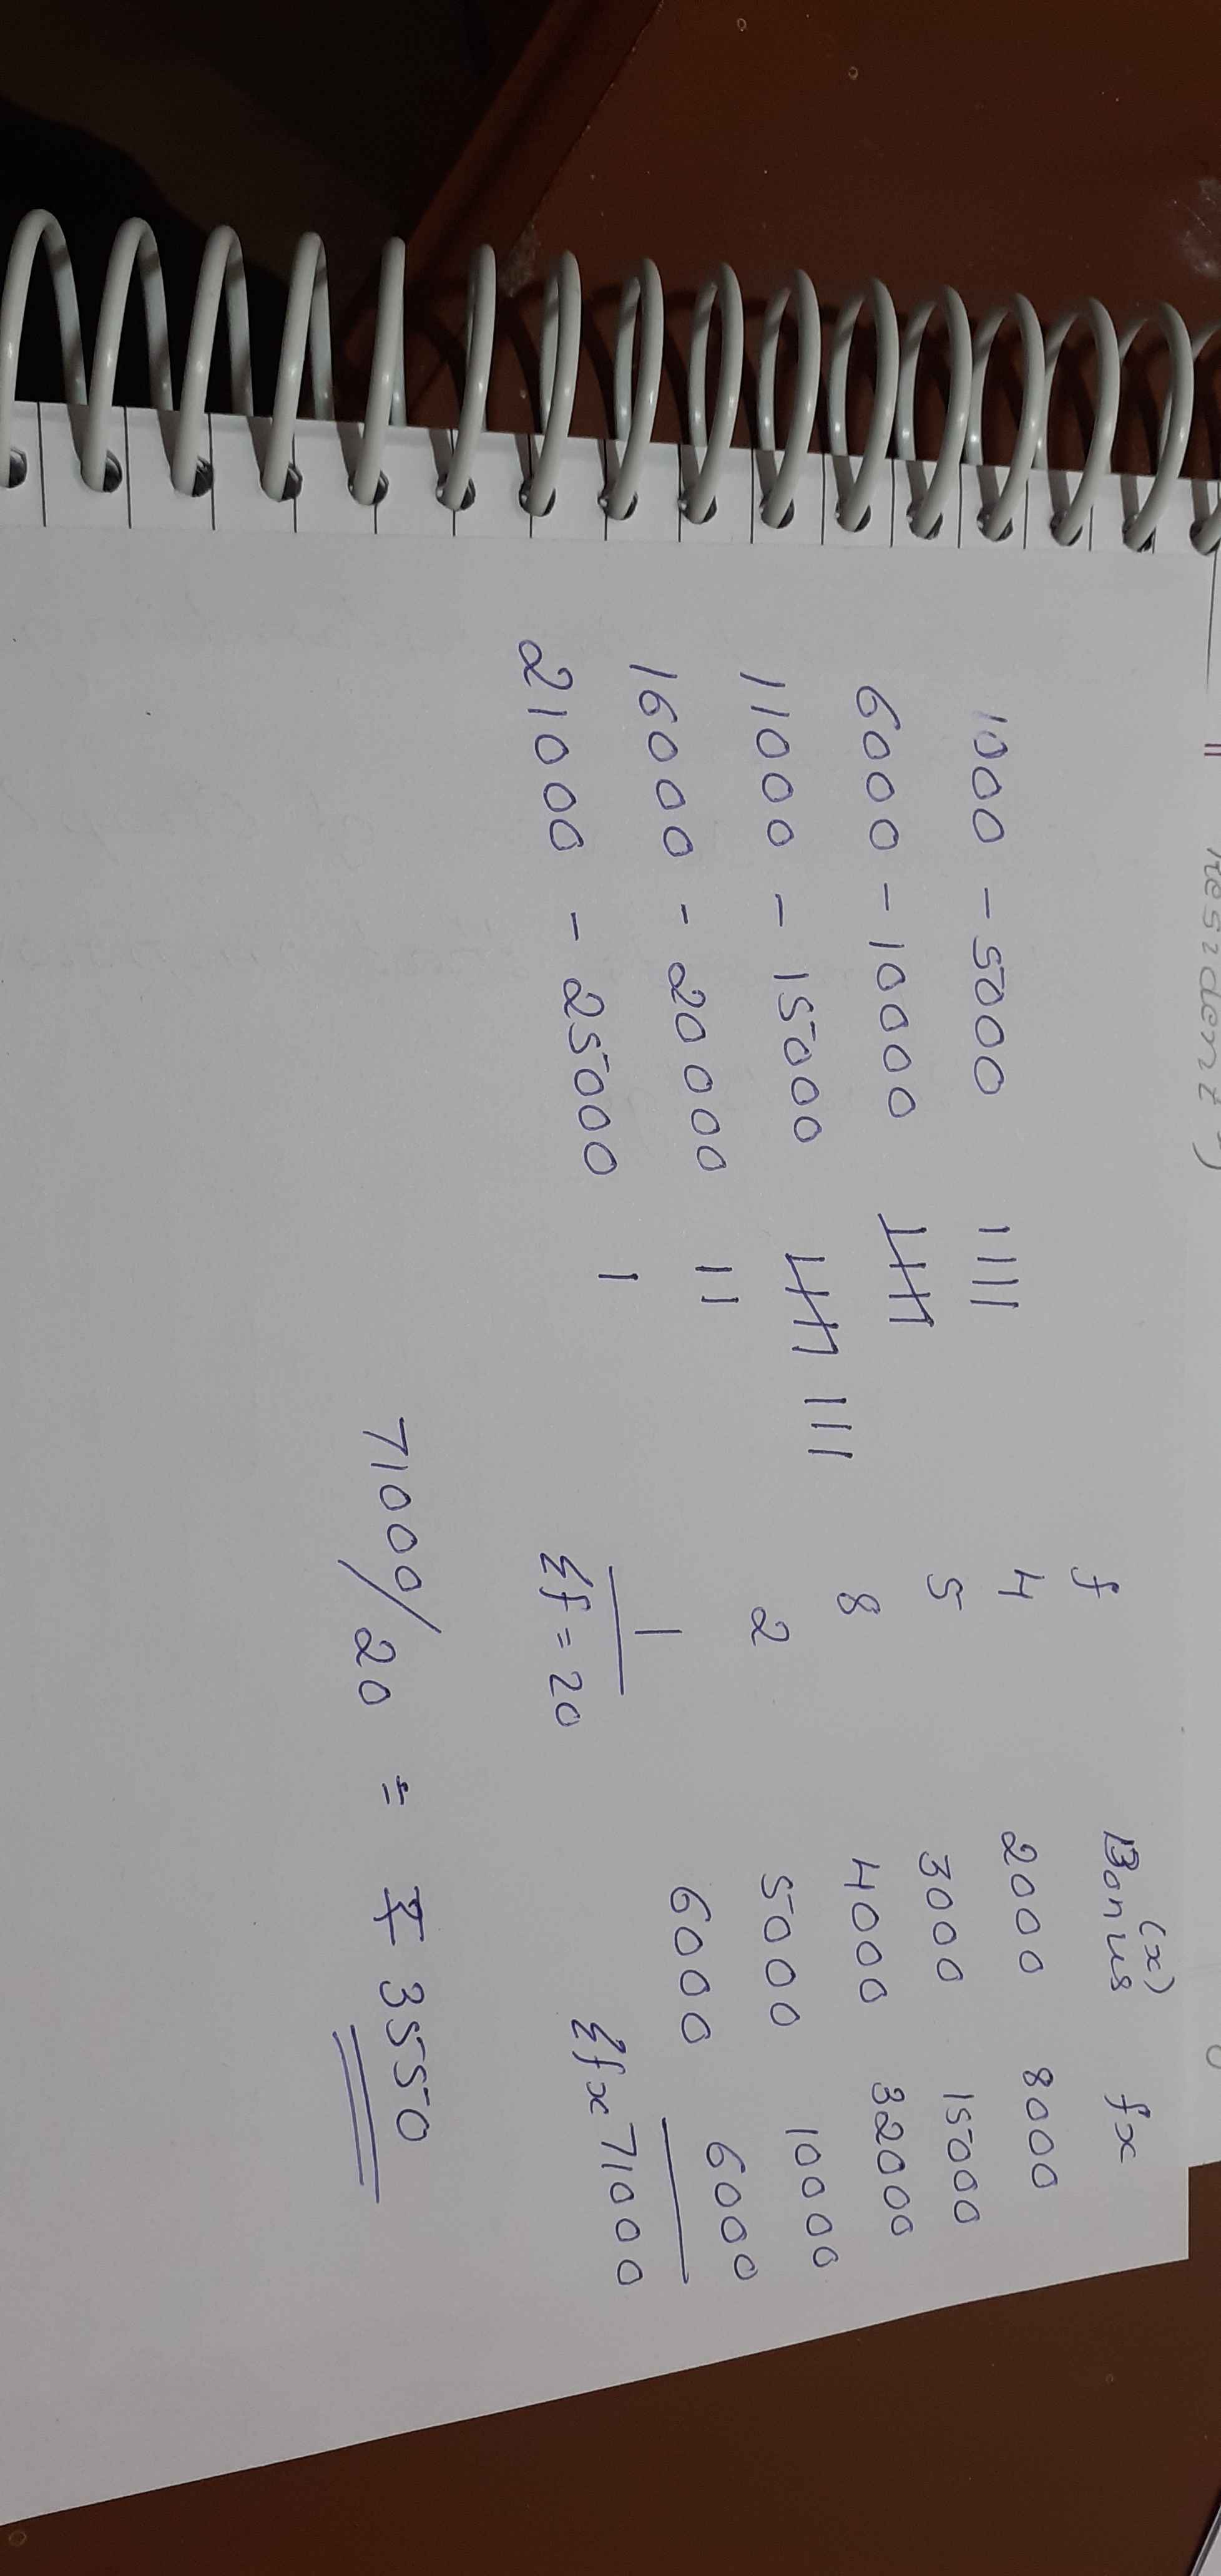 Resident)
f Bonus (x) fx
1000 - 5000 |||| 4 2000 8000
6000 - 10000 𝍸 5 3000 15000
11000 - 15000 𝍸 ||| 8 4000 32000
16000 - 20000 || 2 5000 10000
21000 - 25000 | 1 6000 6000
Σf = 20 Σfx 71000
71000/20 = ₹ 3550